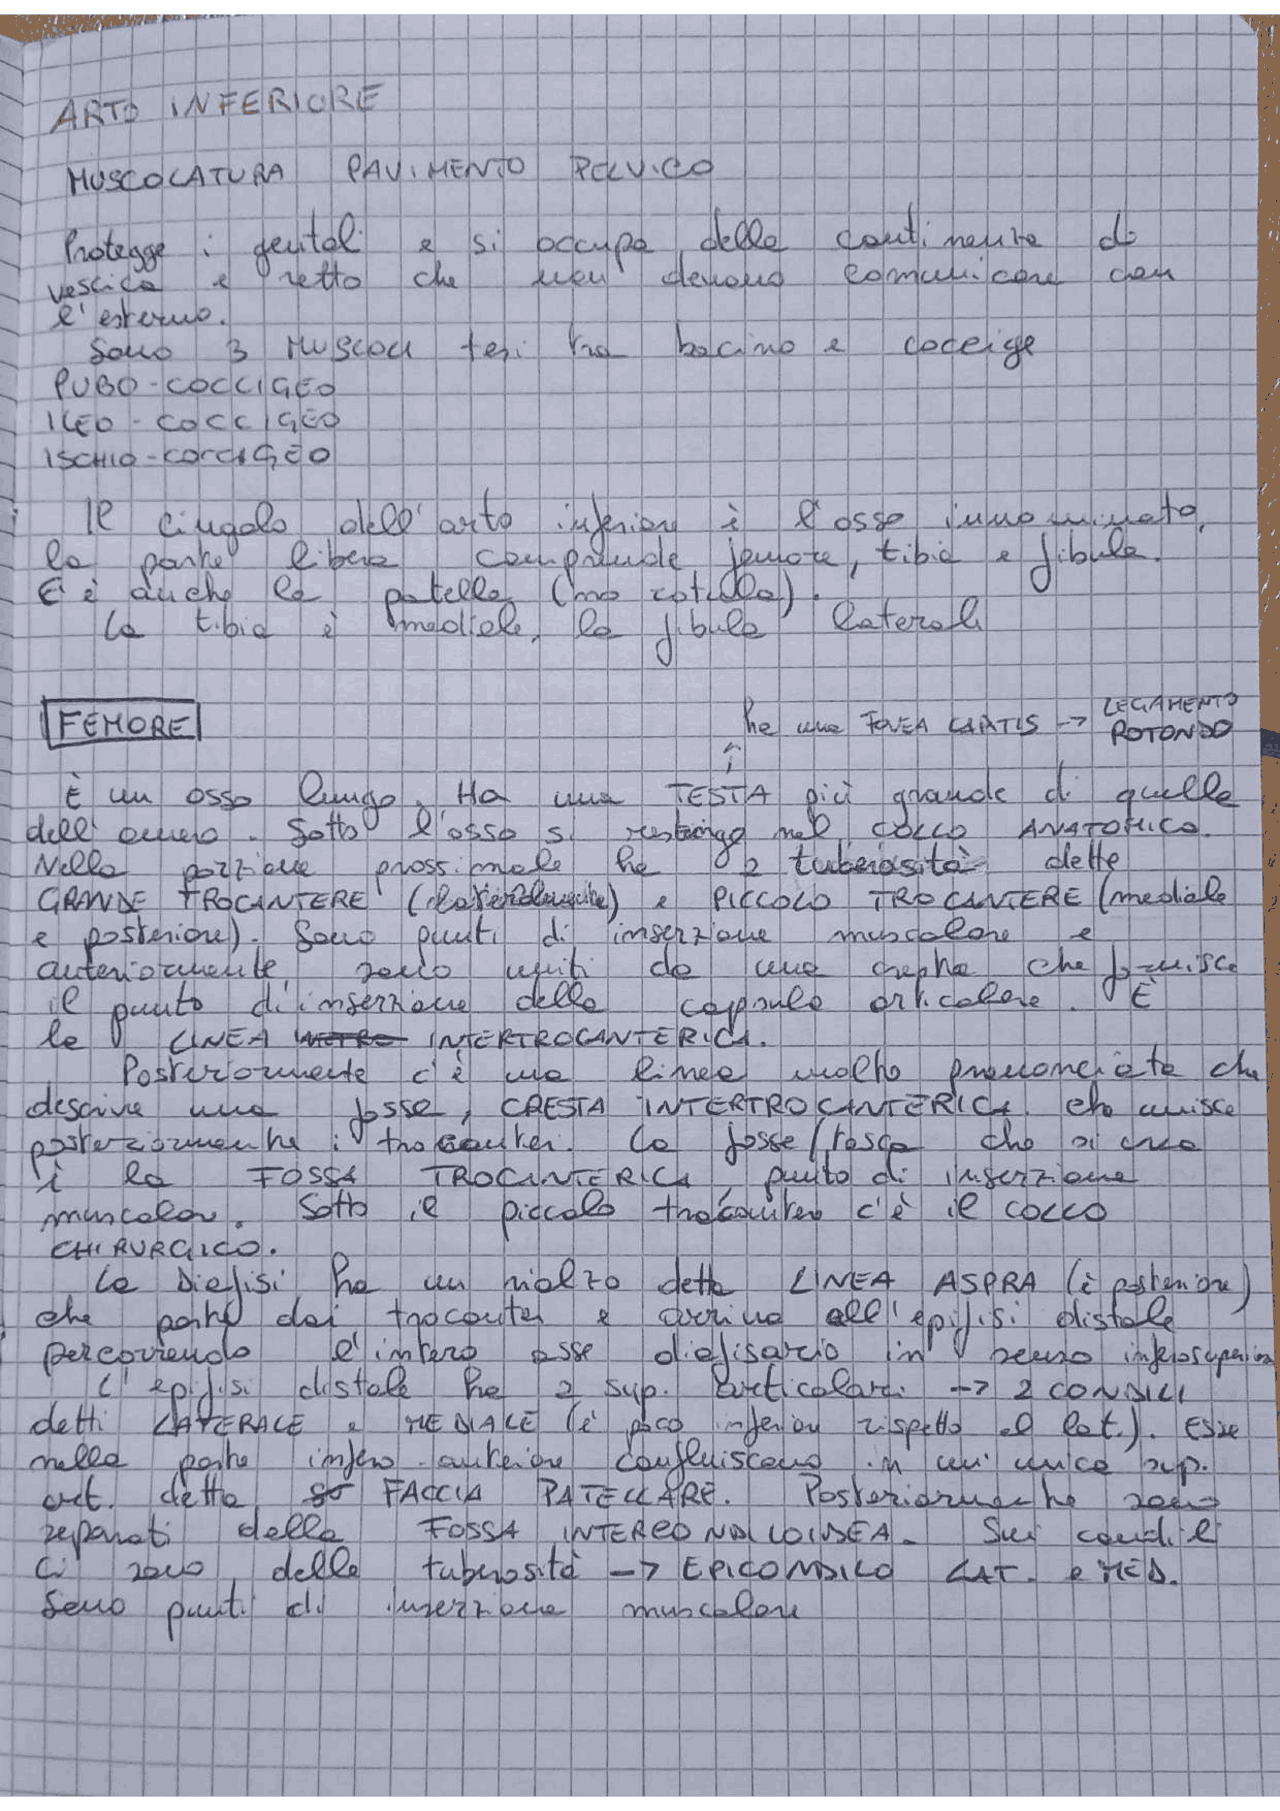 ARTO INFERIORE
MUSCOLATURA PAVIMENTO PELVICO
Protegge i genitali e si occupa della continenza di
vescica e retto che non devono comunicare con
l'esterno.
Sono 3 MUSCOLI tesi tra bacino e coccige
PUBO-COCCIGEO
ILEO-COCCIGEO
ISCHIO-COCCIGEO
Il cingolo dell'arto inferiore è l'osso innominato,
la parte libera comprende femore, tibia e fibula.
C'è anche la patella (no rotula).
La tibia è mediale, la fibula laterale
FEMORE
ha una FOVEA CAPITIS -> LEGAMENTO
ROTONDO
È un osso lungo. Ha una TESTA più grande di quella
dell'omero. Sotto l'osso si restringe nel COLLO ANATOMICO.
Nella porzione prossimale ha 2 tuberosità dette
GRANDE TROCANTERE (lateralmente) e PICCOLO TROCANTERE (mediale
e posteriore). Sono punti di inserzione muscolare e
anteriormente sono uniti da una cresta che fornisce
il punto di inserzione della capsula articolare. È
la LINEA INTERTROCANTERICA.
Posteriormente c'è una linea molto pronunciata che
descrive una fossa, CRESTA INTERTROCANTERICA che unisce
posteriormente i trocanteri. La fossa/fossa che si crea
è la FOSSA TROCANTERICA, punto di inserzione
muscolare. Sotto il piccolo trocantere c'è il COLLO
CHIRURGICO.
La Diafisi ha un rialzo detto LINEA ASPRA (è posteriore)
che parte dai trocanteri e arriva all'epifisi distale
percorrendo l'intero asse diafisario in senso inferosuperiore
L'epifisi distale ha 2 sup. articolari -> 2 CONDILI
detti LATERALE e MEDIALE (è poco inferiore rispetto al lat.). Esse
nella parte infero-anteriore confluiscono in un'unica sup.
art. detta FACCIA PATELLARE. Posteriormente sono
separati dalla FOSSA INTERCONDILOIDEA. Sui condili
ci sono delle tuberosità -> EPICONDILO LAT. e MED.
Sono punti di inserzione muscolare